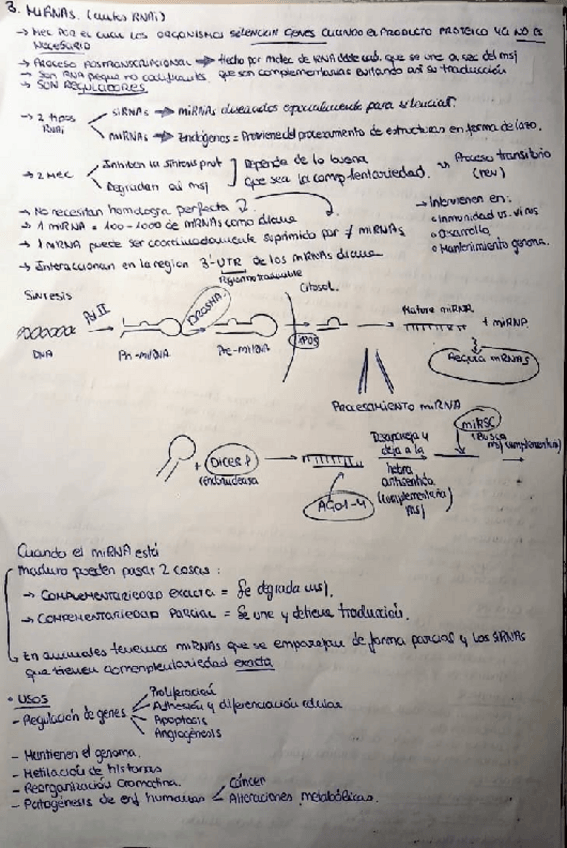 3. MiRNAs. (antes RNAi)
→ Mec por el cual los organismos silencian genes cuando el producto proteico ya no es
necesario
→ Proceso postranscripcional → Hecho por molec de RNA doble cad. que se une a sec del msj
→ Son RNA peque no codificantes que son complementarias evitando así su traducción
→ Son reguladores
→ 2 tipos RNAi
siRNAs → miRNAs diseñados especialmente para silenciar.
miRNAs → Endógenos = Proviene del procesamiento de estructuras en forma de lazo.
→ 2 Mec
Inhiben la síntesis prot
Degradan al msj
Depende de lo buena
que sea la complentariedad.
→ Proceso transitorio
(rev)
→ No necesitan homología perfecta
→ 1 miRNA = 100-1000 de mRNAs como diana
→ 1 mRNA puede ser coordinadamente suprimido por ≠ miRNAs
→ Interaccionan en la region 3'-UTR de los mRNAs diana
Región no traducible
→ Intervienen en:
• Inmunidad vs. virus
• Dsarrollo
• Mantenimiento genoma.
Síntesis
Pol II
DROSHA
Citosol.
Mature miRNA
+ miRNA
DNA
Pri-miRNA
Pre-miRNA
XPO5
Regula mRNAs
Procesamiento miRNA
DICER
(endonucleasa
AGO1-4
Desapareja y
deja a la
hebra
antisentido
(complementaria
msj)
miRSC
(Busca
msj complementia)
Cuando el miRNA está
maduro pueden pasar 2 cosas:
→ Complementariedad exacta = Se degrada msj.
→ Complementariedad parcial = Se une y detiene traducción.
En animales tenemos miRNAs que se emparejan de forma parcial y los siRNAs
que tienen complentariedad exacta
• Usos
- Regulación de genes
Proliferación
Adhesión y diferenciación celular
Apoptosis
Angiogénesis
- Mantienen el genoma.
- Metilación de histonas
- Reorganización cromatina.
- Patogénesis de enf humanas
Cáncer
Alteraciones metabólicas.